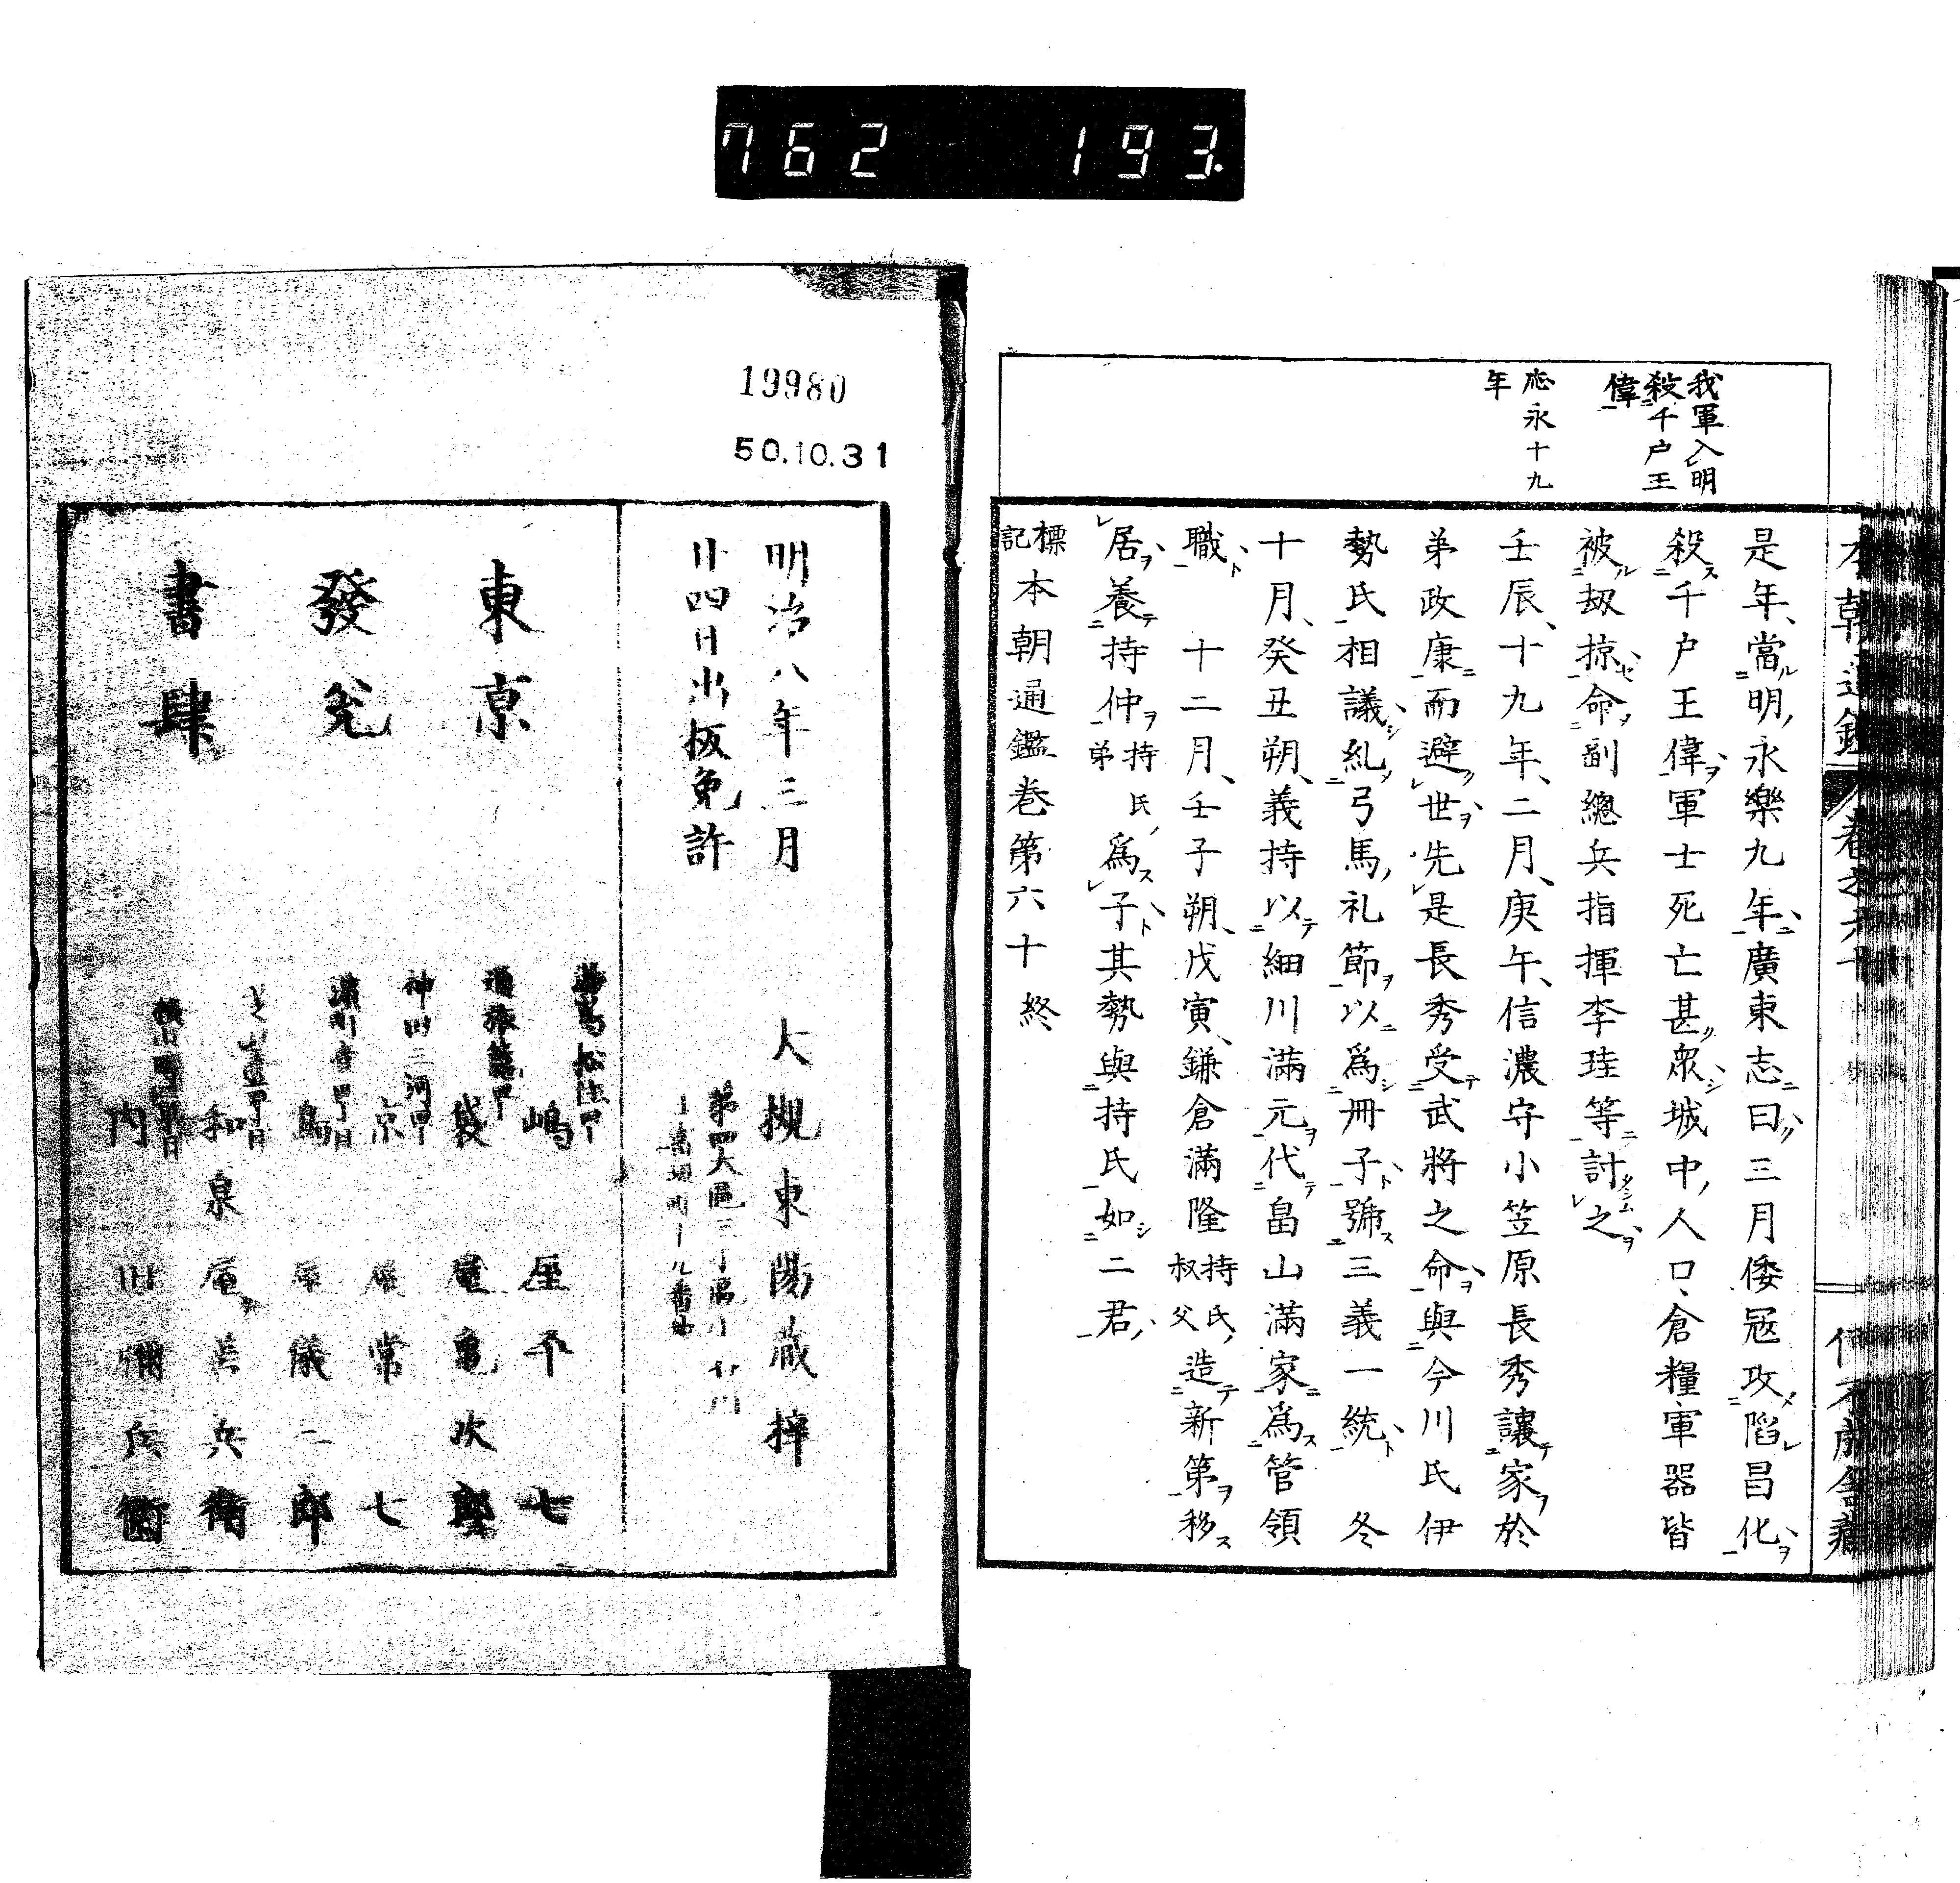 762 193
我軍入明
殺千戶王
偉
応永十九
年
是年、當明永樂九年、廣東志曰三月倭寇攻陷昌化
殺千戶王偉軍士死亡甚衆城中人口、倉糧、軍器皆
被刼掠命副總兵指揮李珪等討之
壬辰、十九年、二月、庚午、信濃守小笠原長秀讓家於
弟政康而避世先是長秀受武將之命與今川氏伊
勢氏相議糺弓馬礼節以爲冊子號三義一統 冬
十月、癸丑朔、義持以細川滿元代畠山滿家爲管領
職 十二月、壬子朔、戊寅、鎌倉滿隆持氏叔父造新第移
居養持仲持氏弟爲子其勢與持氏如二君
標記本朝通鑑卷第六十終
19980
50.10.31
明治八年三月
廿四日出板免許
大槻東陽蔵梓
東京
發兌
書肆
嶋屋平七
袋屋亀次郎
京屋常七
島屋儀三郎
和泉屋吉兵衛
内田彌兵衛